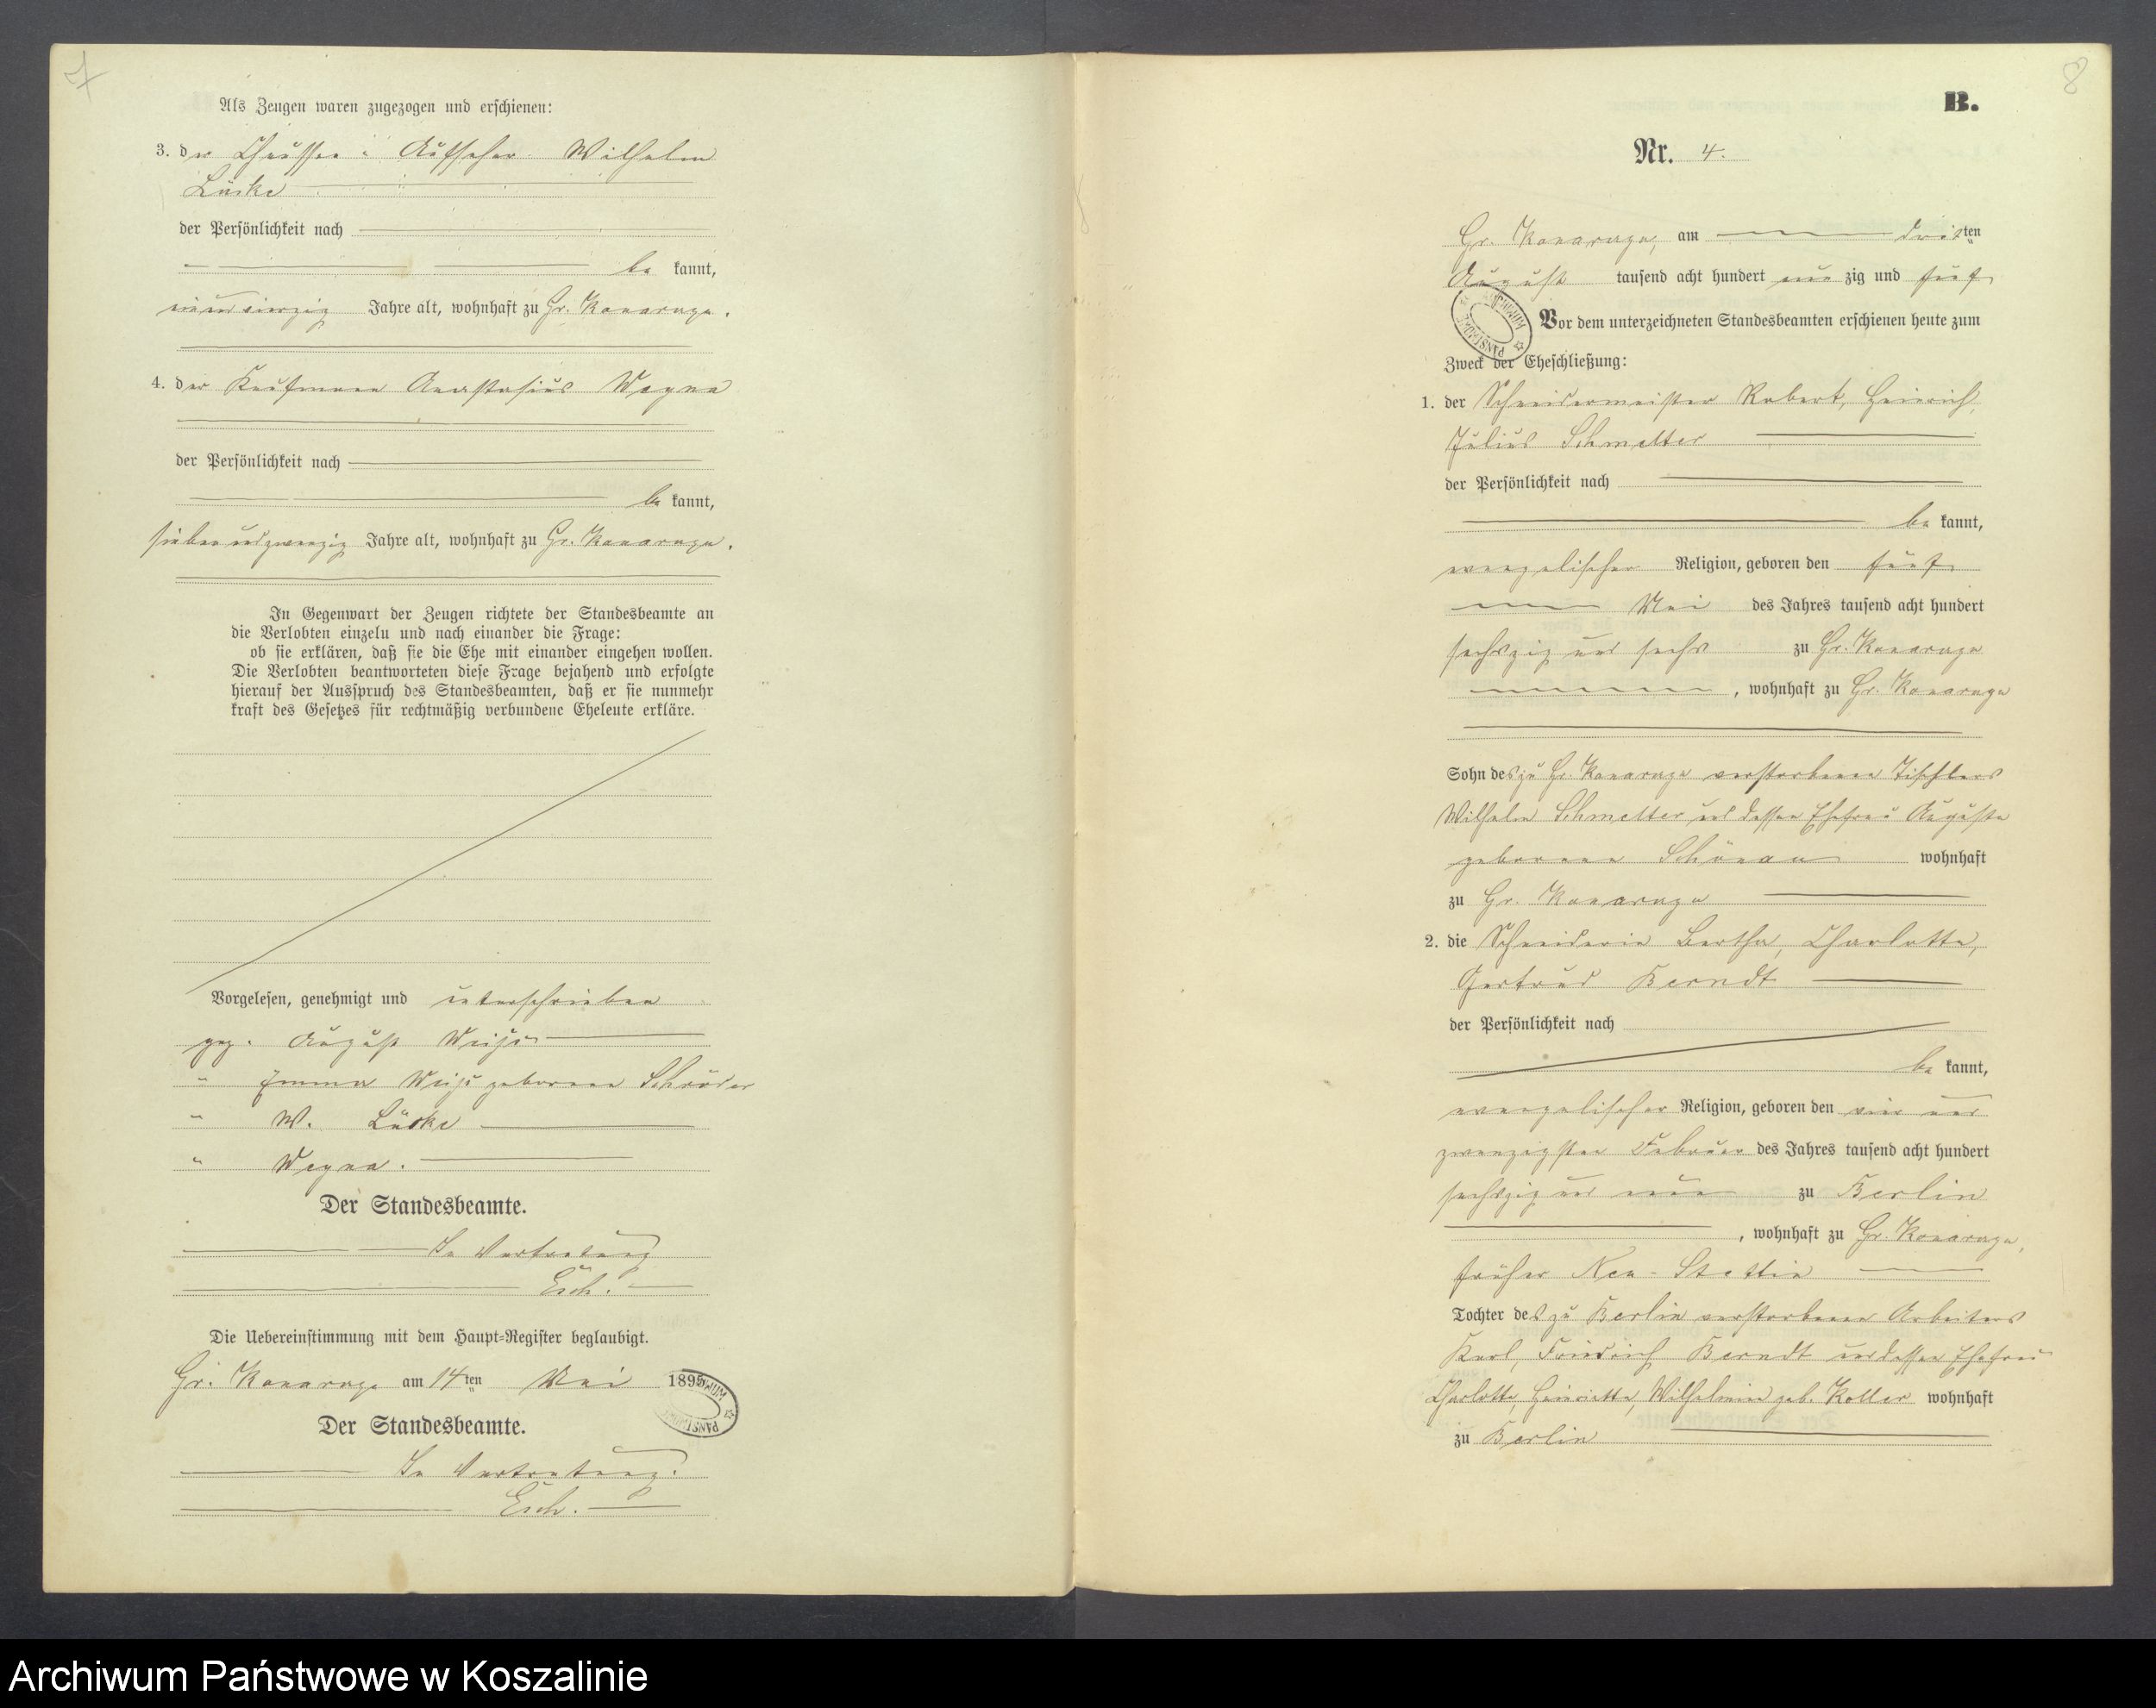 7
Als Zeugen waren zugezogen und erschienen:
3. der Chaussee-Aufseher Wilhelm
Lücke
der Persönlichkeit nach
be kannt,
neunundvierzig Jahre alt, wohnhaft zu Gr. Konarczyn.
4. der Kaufmann Anastasius Wegna
der Persönlichkeit nach
be kannt,
siebenundzwanzig Jahre alt, wohnhaft zu Gr. Konarczyn.
In Gegenwart der Zeugen richtete der Standesbeamte an
die Verlobten einzeln und nach einander die Frage:
ob sie erklären, daß sie die Ehe mit einander eingehen wollen.
Die Verlobten beantworteten diese Frage bejahend und erfolgte
hierauf der Ausspruch des Standesbeamten, daß er sie nunmehr
kraft des Gesetzes für rechtmäßig verbundene Eheleute erkläre.
Vorgelesen, genehmigt und unterschrieben
gez. August
" Emma geborene Schröder
" W. Lücke
" Wegna.
Der Standesbeamte.
In Vertretung
Der Standesbeamte.
Die Uebereinstimmung mit dem Haupt-Register beglaubigt.
am 14ten Mai 1895
Der Standesbeamte.
In Vertretung.
8
B.
Nr. 4.
am dritten
August tausend acht hundert neun zig und fünf
Vor dem unterzeichneten Standesbeamten erschienen heute zum
Zweck der Eheschließung:
1. der Schneidermeister Robert, Heinrich,
Julius Schmelter
der Persönlichkeit nach
be kannt,
evangelischer Religion, geboren den fünf
ten Mai des Jahres tausend acht hundert
sechszig und sechs zu Gr.
, wohnhaft zu Gr.
Sohn des zu Gr. verstorbenen Tischlers
Wilhelm Schmelter und dessen Ehefrau Auguste
geborene Schönau wohnhaft
zu Gr.
2. die Schneiderin Bertha, Charlotte,
Gertrud Berndt
der Persönlichkeit nach
be kannt,
evangelischer Religion, geboren den vier und
zwanzigsten Februar des Jahres tausend acht hundert
sechszig und neun zu Berlin
, wohnhaft zu Gr.
früher Neu-Stettin
Tochter des zu Berlin verstorbenen Arbeiters
Karl, Friedrich Berndt und dessen Ehefrau
Charlotte, Henriette, Wilhelmine geb. Koller wohnhaft
zu Berlin
Archiwum Państwowe w Koszalinie